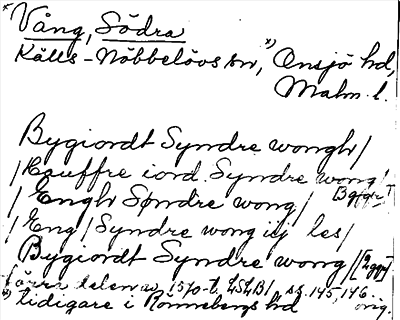 * Vång, Södra
Källs-Nöbbelövs sn, *) Onsjö hd,
Malm. l.
Bygiordt Syndre wongh/
/ iord Syndre wong/
/ Engh Søndre wong/
/ Eng / Syndre wong iij les/
Bygiordt Syndre wong /
förra delen av 1570-t. LSLB/ ss. 145, 146. orig.
*) tidigare i Rönnebergs hd